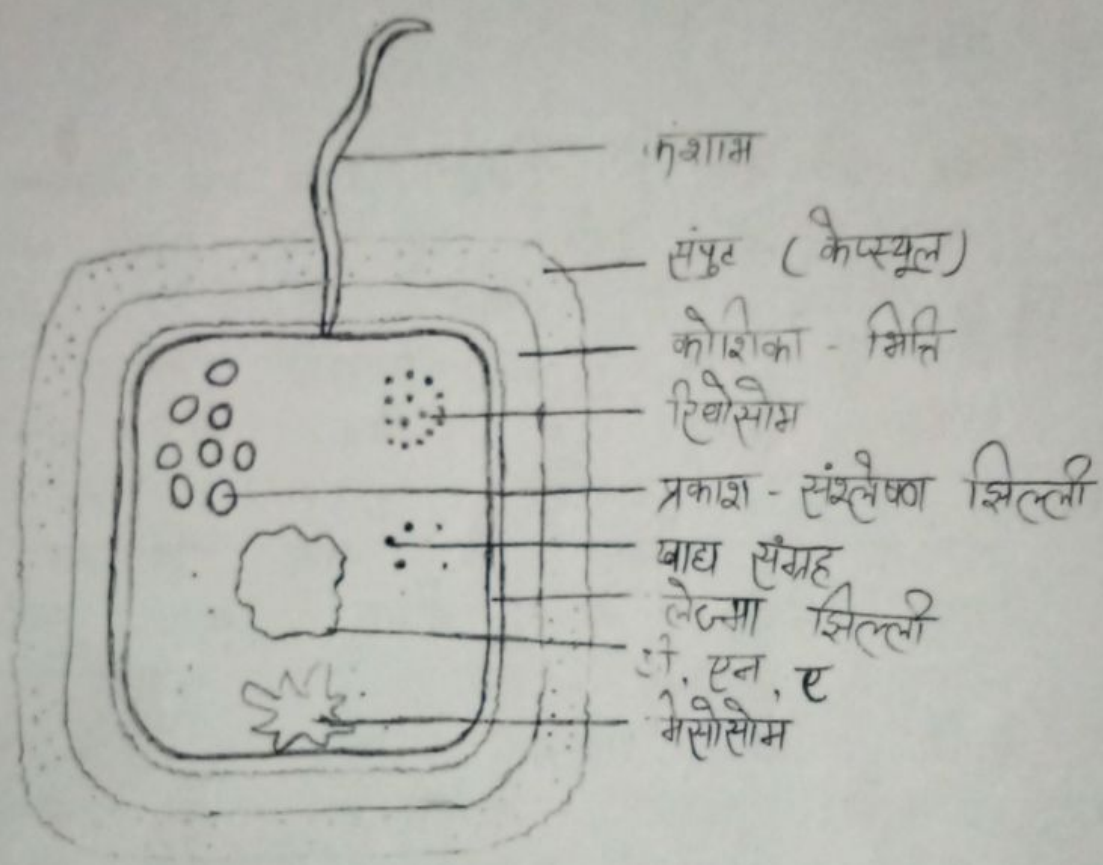 कशाभ
संपुट (केप्स्यूल)
कोशिका - भित्ति
रिबोसोम
प्रकाश - संश्लेषण झिल्ली
खाद्य संग्रह
लेज्मा झिल्ली
एन. ए
मेसोसोम